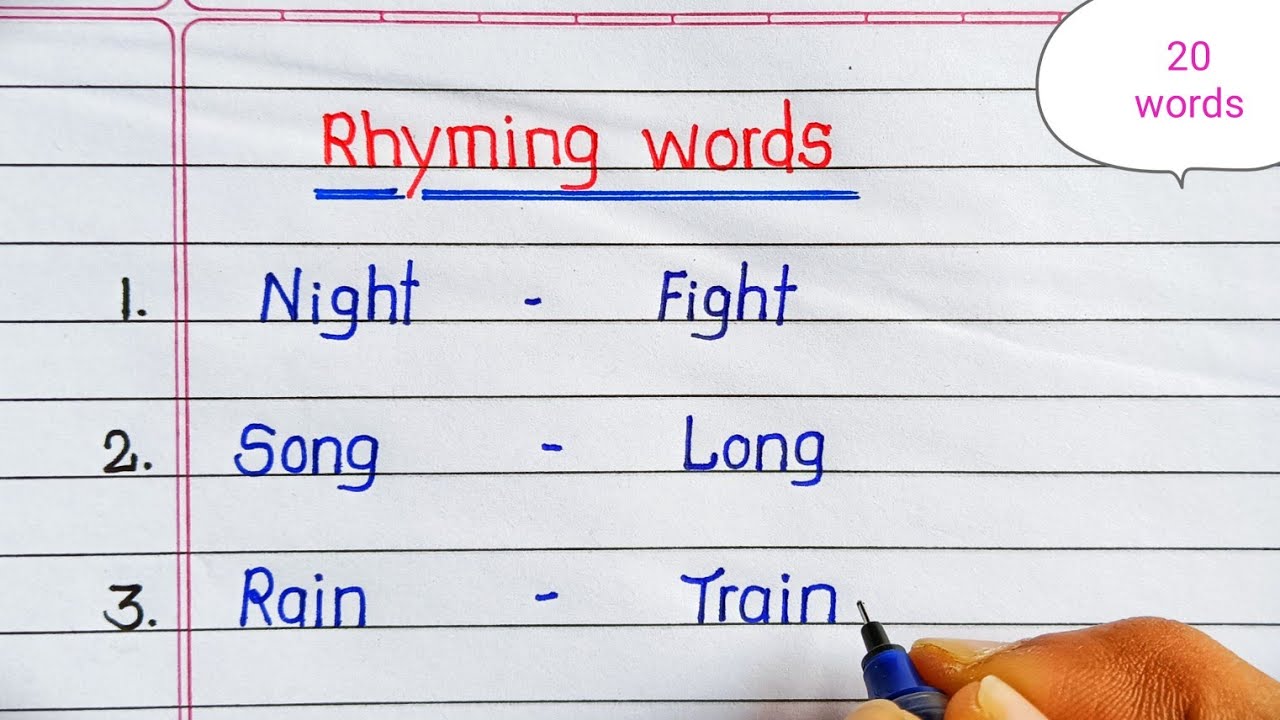 20
words
Rhyming words
1. Night - Fight
2. Song - Long
3. Rain - Train